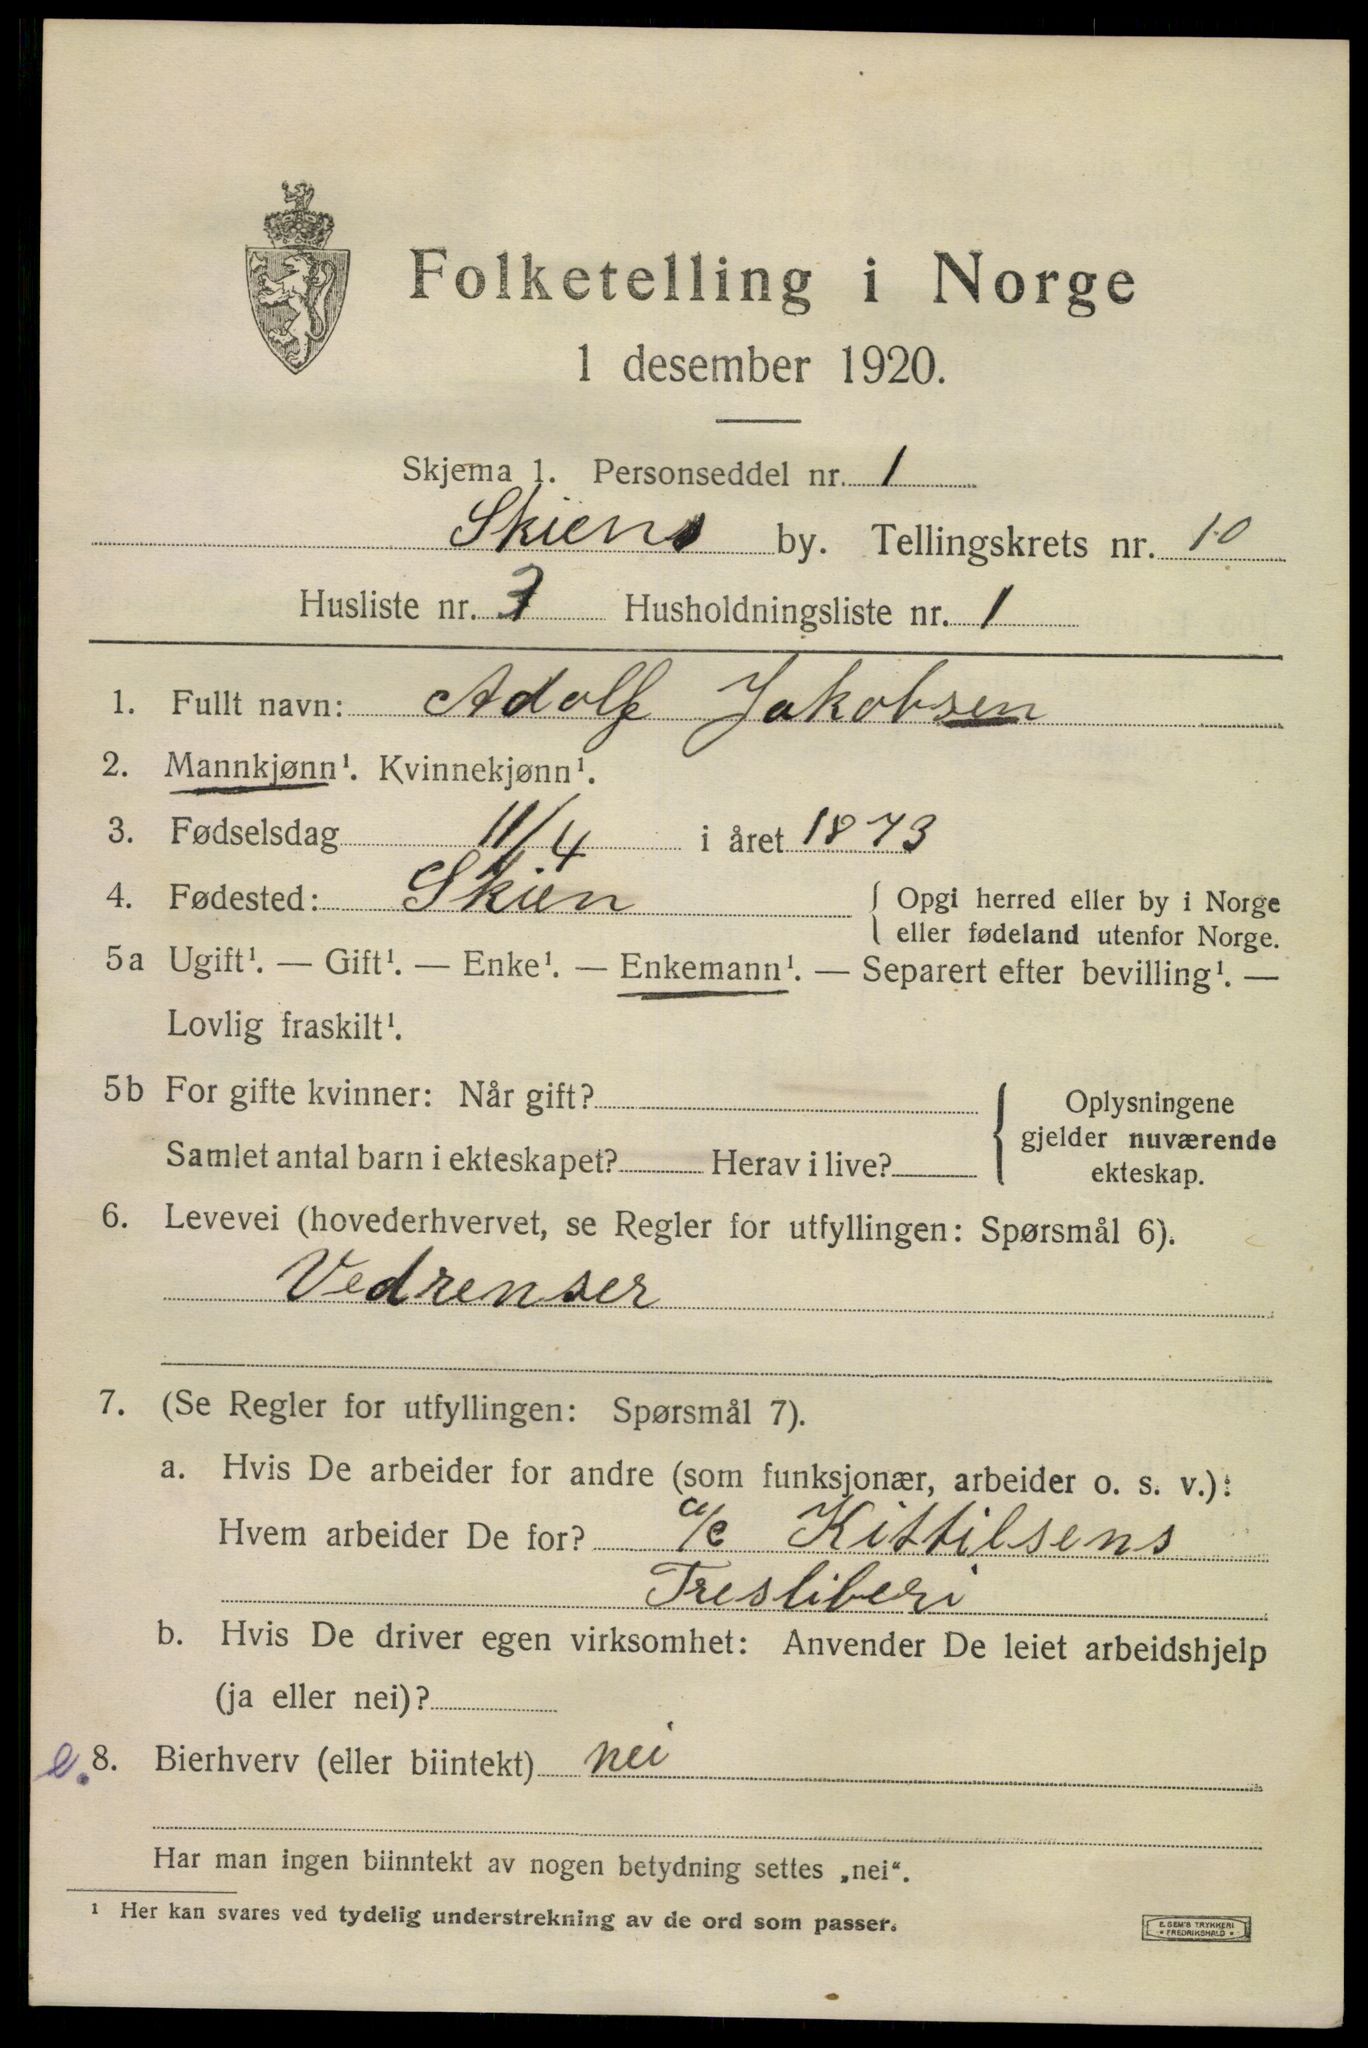 Folketelling i Norge
1 desember 1920.
Skjema 1. Personseddel nr. 1
Skiens by. Tellingskrets nr. 10
Husliste nr. Husholdningsliste nr. 1
1. Fullt navn: Adolf Jakobsen
2. Mannkjønn¹. Kvinnekjønn¹.
3. Fødselsdag 11/4 i året 1873
4. Fødested: Skien { Opgi herred eller by i Norge
eller fødeland utenfor Norge.
5a Ugift¹. — Gift¹. — Enke¹. — Enkemann¹. — Separert efter bevilling¹. —
Lovlig fraskilt¹.
5b For gifte kvinner: Når gift?
Samlet antal barn i ekteskapet? Herav i live?
{ Oplysningene
gjelder nuværende
ekteskap.
6. Levevei (hovederhvervet, se Regler for utfyllingen: Spørsmål 6).
Vedrenser
7. (Se Regler for utfyllingen: Spørsmål 7).
a. Hvis De arbeider for andre (som funksjonær, arbeider o. s. v.):
Hvem arbeider De for? a/c Kittilsens
Tresliberi
b. Hvis De driver egen virksomhet: Anvender De leiet arbeidshjelp
(ja eller nei)?
8. Bierhverv (eller biintekt) nei
Har man ingen biinntekt av nogen betydning settes „nei“.
¹ Her kan svares ved tydelig understrekning av de ord som passer.
E. SEM'S TRYKKERI
* FREDRIKSHALD *